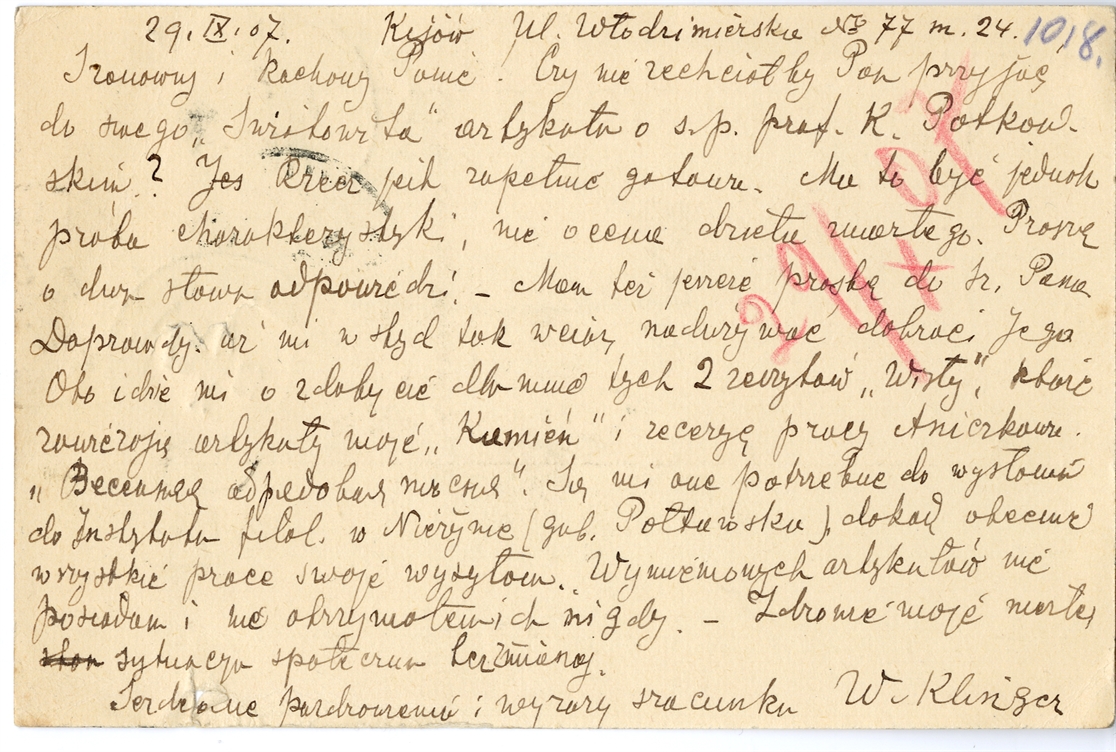 29. IX. 07. Kijów Ul. Włodzimierska № 77 m. 24. 1018.
Szanowny i Kochany Panie! Czy nie zechciałby Pan przyjąć
do swego „Światowita" artykułu o s.p. prof. K. Potkow-
skim? Jes rzecz zupełnie gotowa. Ma to być jednak
próba charakterystyki, nie ocena dzieła zmarłego. Proszę
o dwa słowa odpowiedzi. – Mam też jeszcze prośbę do Sz. Pana
Doprawdy aż mi wstyd tak wciąż nadużywać dobroci Jego
Oto idzie mi o zdobycie dla mnie tych 2 zeszytów „Wisły", które
zawierają artykuły moje „Kamień" i recenzję pracy Aniczkowa.
„Весенняя обрядовая пѣсня". Są mi one potrzebne do wysłania
do Instytutu filol. w Nieżynie (gub. Połtawska), dokąd obecnie
wszystkie prace swoje wysyłam. Wymienionych artykułów nie
posiadam i nie otrzymałem ich nigdy. – Zdrowie moje niezłe,
sytuacya społeczna bez zmiany.
Serdeczne pozdrowienia i wyrazy szacunku W. Klinger
29/IX 07